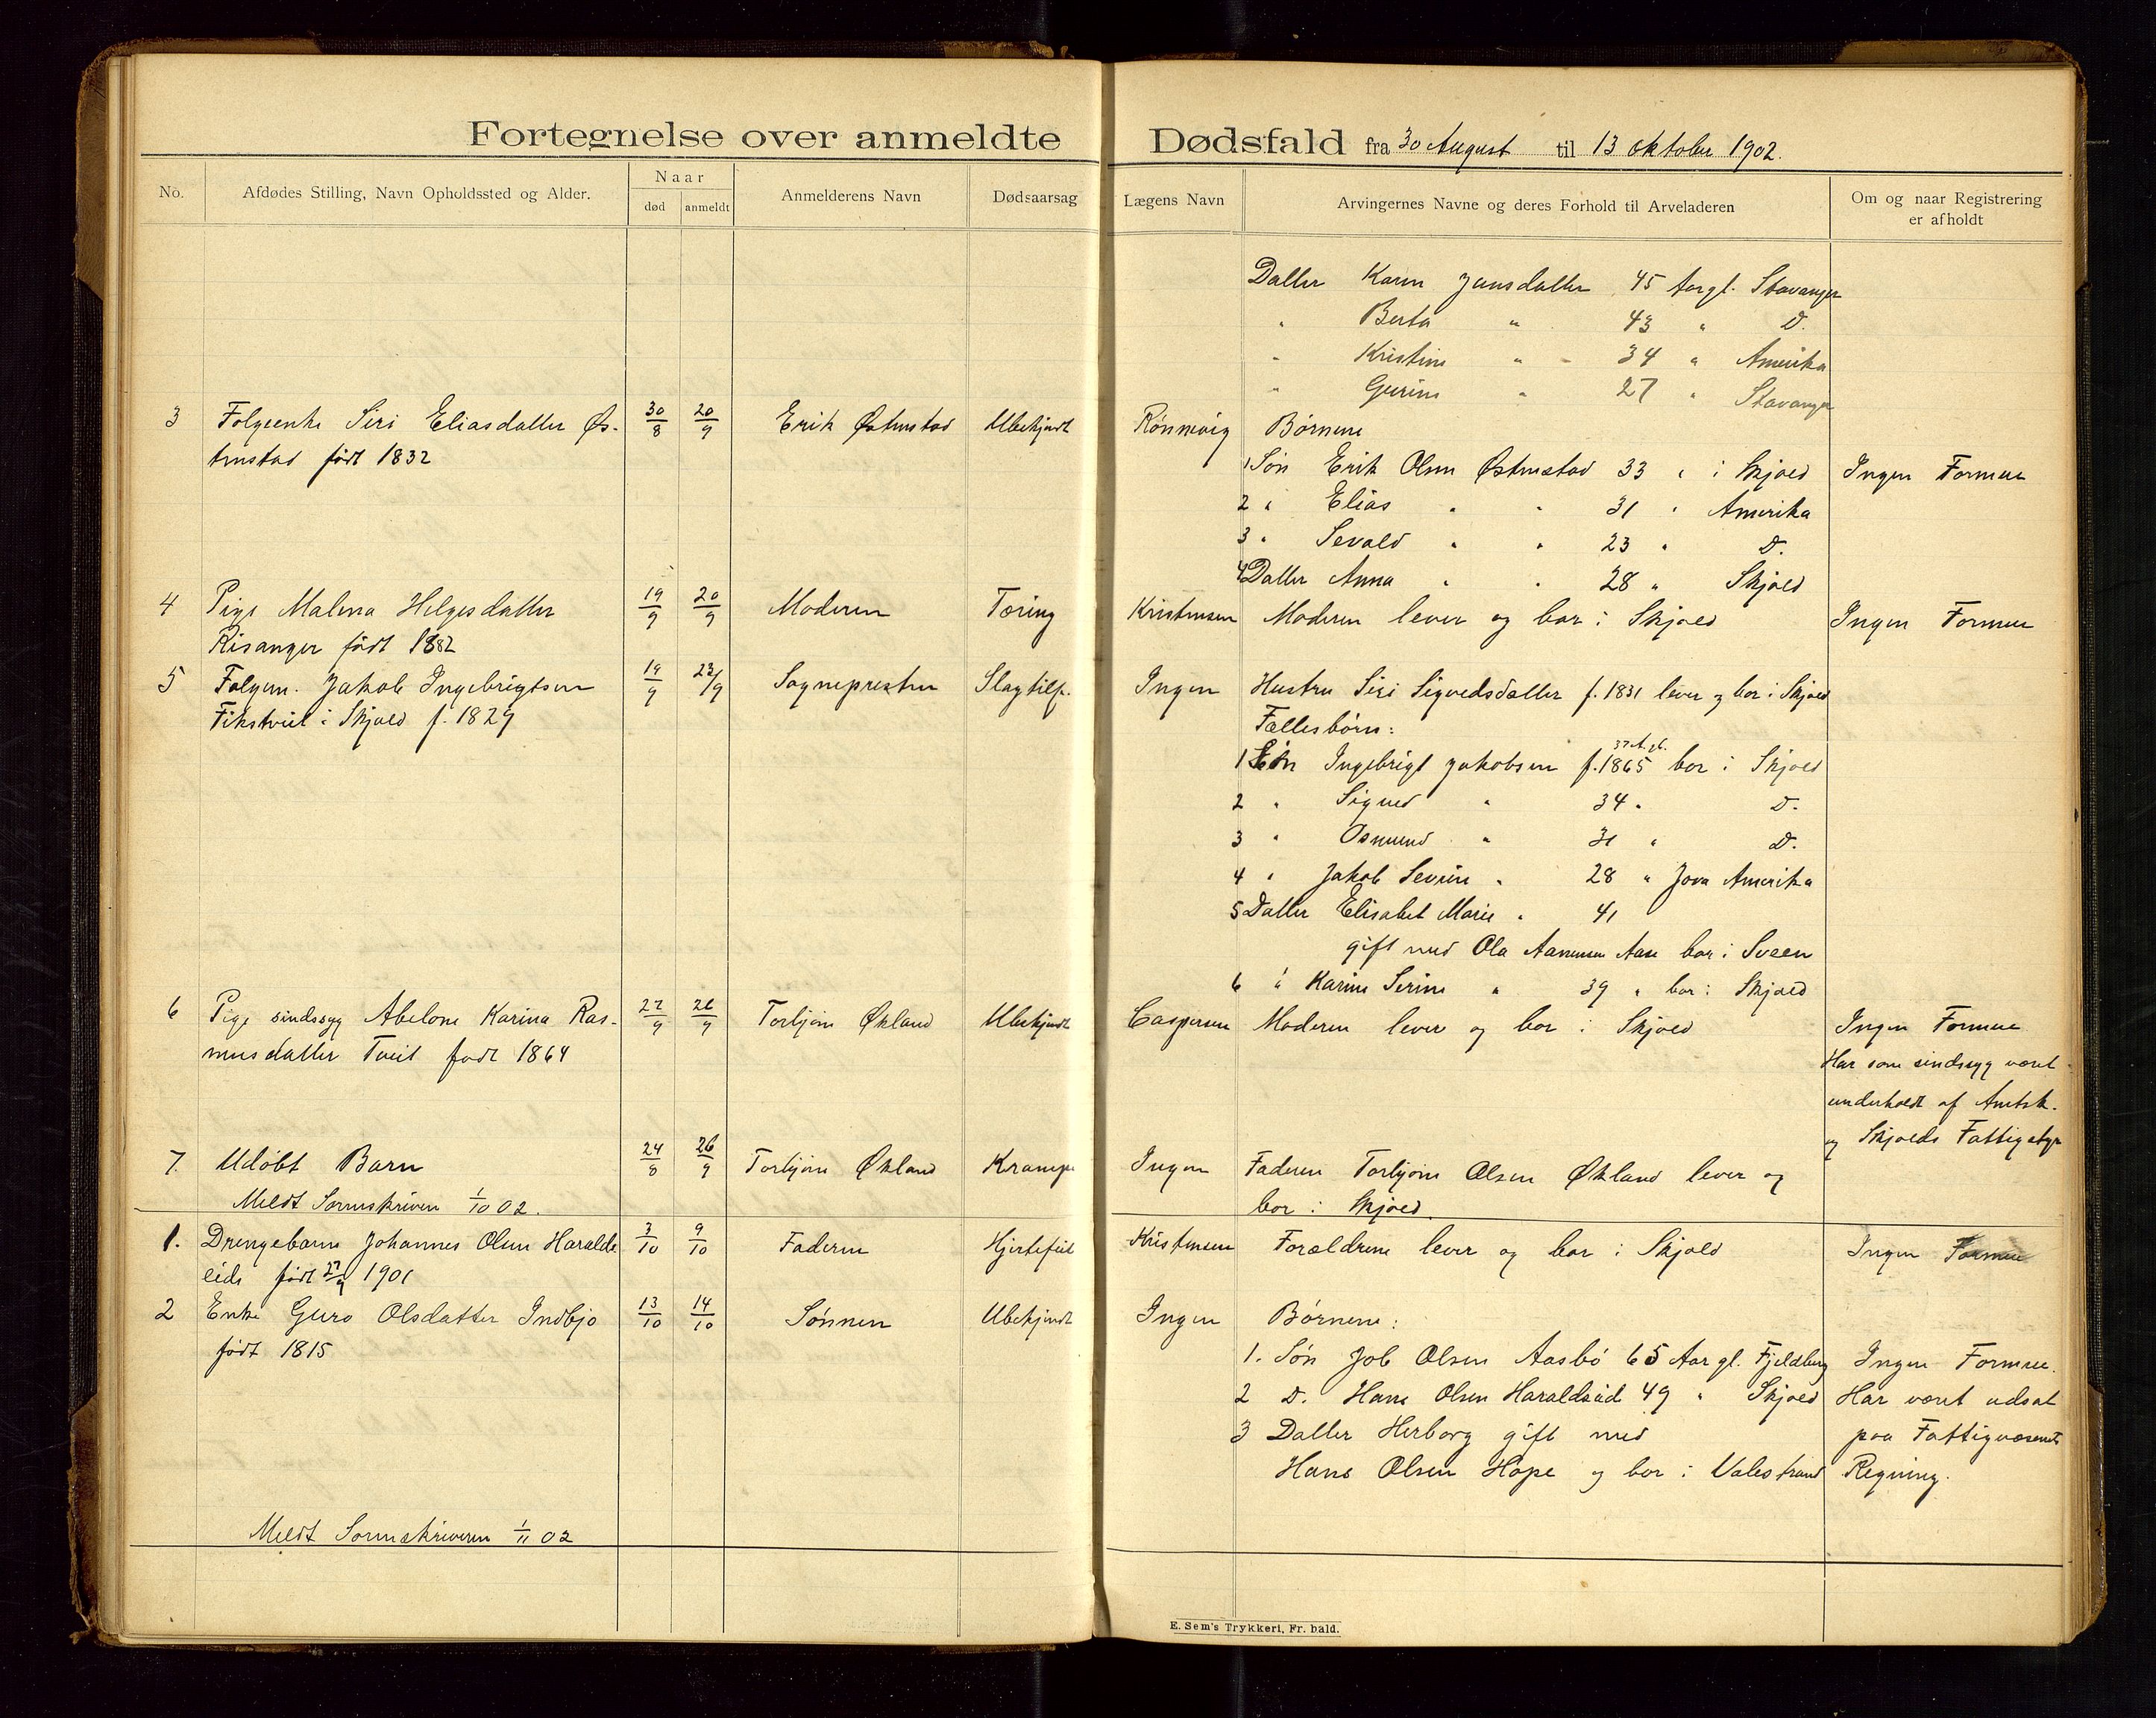 Fortegnelse over anmeldte Dødsfald fra 30 August til 13 oktober 1902.
No. Afdødes Stilling, Navn Opholdssted og Alder. Naar død anmeldt Anmelderens Navn Dødsaarsag Lægens Navn Arvingernes Navne og deres Forhold til Arveladeren Om og naar Registrering er afholdt
Datter Karen Jensdatter 45 Aar gl. Stavanger
" Berta " 43 " D.
" Kristine " 34 " Amerika
" Gurine " 27 " Stavanger
3 Folgeenke Siri Eliasdatter Øs- 30/8 20/9 Erik Østenstad Ubekjendt Rønnevig Børnene
tenstad født 1832
1 Søn Erik Olsen Østenstad 33 " i Skjold Ingen Formue
2 " Elias " " 31 " Amerika
3 " Sevald " " 23 " D.
4 Datter Anna " " 28 " Skjold
4 Pige Malena Helgesdatter 19/9 20/9 Moderen Tæring Kristensen Moderen lever og bor i Skjold Ingen Formue
Risanger født 1882
5 Folgem. Jakob Ingebrigtsen 19/9 23/9 Sognepresten Slagtilf. Ingen Hustru Siri Sigvedsdatter f. 1831 lever og bor i Skjold
Fikstveit i Skjold f. 1829
Fællesbørn:
37 A. gl.
1 Søn Ingebrigt Jakobsen f. 1865 bor i Skjold
2 " Sigved " 34 " D.
3 " Osmund " 31 " D.
4 " Jakob Severin " 28 " Jova Amerika
5 Datter Elisabet Marie " 41
gift med Ola Aanensen Aase bor i Sveen
6 " Karine Serine " 39 " bor i Skjold
6 Pige sindssyg Abelone Karina Ras- 22/9 26/9 Torbjørn Økland Ubekjendt Caspersen Moderen lever og bor i Skjold Ingen Formue
musdatter Tveit født 1864
Har som sindssyg været
underholdt af Amtsk.
og Skjolds Fattigstyr
7. Udøbt Barn 24/8 26/9 Torbjørn Økland Krampe Ingen Faderen Torbjørn Olsen Økland lever og
bor i Skjold.
Meldt Sorenskriveren 1/10 02.
1. Drengebarn Johannes Olsen Haralds 3/10 9/10 Faderen Hjertefeil Kristensen Forældrene lever og bor i Skjold Ingen Formue
eide født 27/9 1901
2 Enke Guro Olsdatter Indbjo 13/10 14/10 Sønnen Ubekjendt Ingen Børnene:
født 1815
1. Søn Job Olsen Aasbø 65 Aar gl. Fjeldberg Ingen Formue.
2 D. Hans Olsen Haraldseid 49 " Skjold Har været udsat
3 Datter Herborg gift med paa Fattigvæsenets
Hans Olsen Hope og bor i Valestrand Regning.
Meldt Sorenskriveren 1/11 02
E. Sem's Trykkeri, Fr. hald.